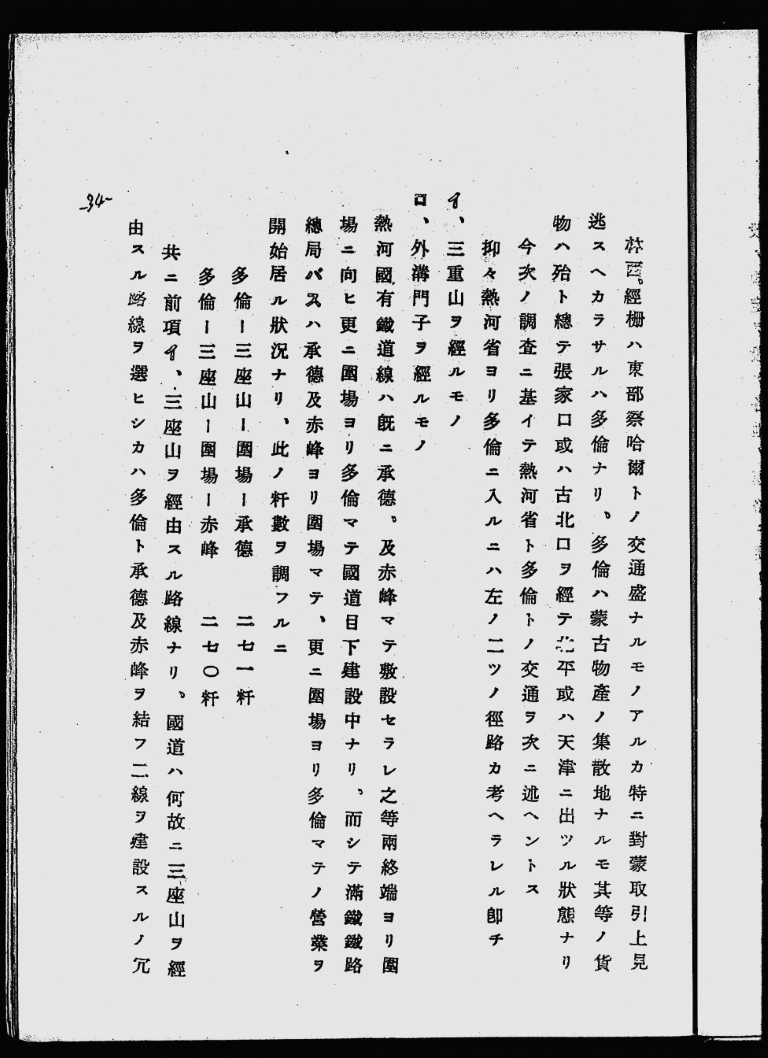 林西、經棚ハ東部察哈爾トノ交通盛ナルモノアルカ特ニ對蒙取引上見
逃スヘカラサルハ多倫ナリ、多倫ハ蒙古物產ノ集散地ナルモ其等ノ貨
物ハ殆ト總テ張家口或ハ古北口ヲ經テ北平或ハ天津ニ出ツル狀態ナリ
今次ノ調査ニ基イテ熱河省ト多倫トノ交通ヲ次ニ述ヘントス
抑々熱河省ヨリ多倫ニ入ルニハ左ノ二ツノ徑路カ考ヘラレル卽チ
イ、三重山ヲ經ルモノ
ロ、外溝門子ヲ經ルモノ
熱河國有鐵道線ハ既ニ承德、及赤峰マテ敷設セラレ之等兩終端ヨリ圍
場ニ向ヒ更ニ圍場ヨリ多倫マテ國道目下建設中ナリ、而シテ滿鐵鐵路
總局バスハ承德及赤峰ヨリ圍場マテ、更ニ圍場ヨリ多倫マテノ營業ヲ
開始居ル狀況ナリ、此ノ粁數ヲ調フルニ
多倫ー三座山ー圍場ー承德 二七一粁
多倫ー三座山ー圍場ー赤峰 二七〇粁
共ニ前項イ、三座山ヲ經由スル路線ナリ、國道ハ何故ニ三座山ヲ經
由スル路線ヲ選ヒシカハ多倫ト承德及赤峰ヲ結フ二線ヲ建設スルノ冗
-34-